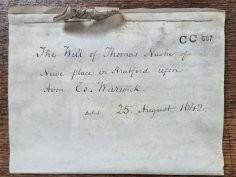 CC 667
The Will of Thomas Nashe of
New place in Stratford upon
Avon Co. Warwick
dated 25 August 1642.